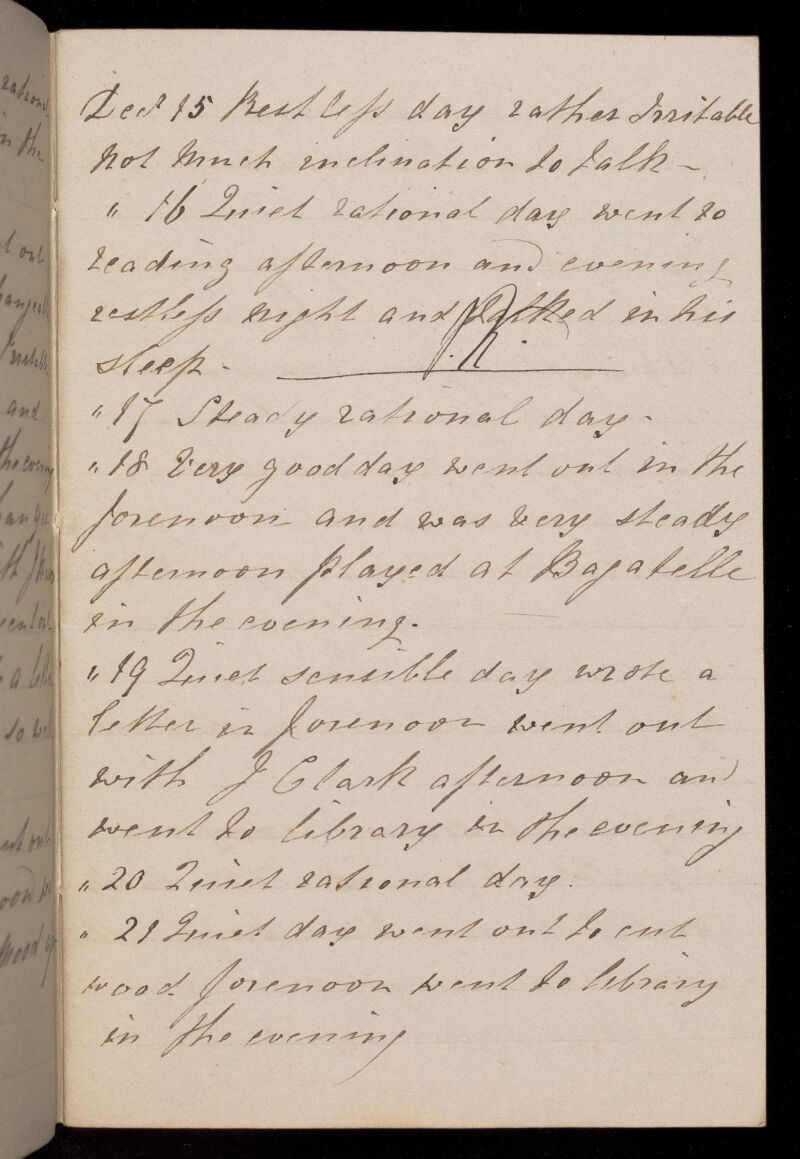 Dec 15 Restless day rather Irritable
Not Much inclination to talk -
" 16 Quiet rational day went to
reading afternoon and evening
restless night and talked in his
sleep -
" 17 Steady rational day -
" 18 Very good day went out in the
forenoon and was very steady
afternoon played at Bagatelle
in the evening.
" 19 Quiet sensible day wrote a
letter in forenoon went out
with J Clark afternoon and
went to library in the evening
" 20 Quiet rational day.
" 21 Quiet day went out to cut
wood forenoon went to library
in the evening